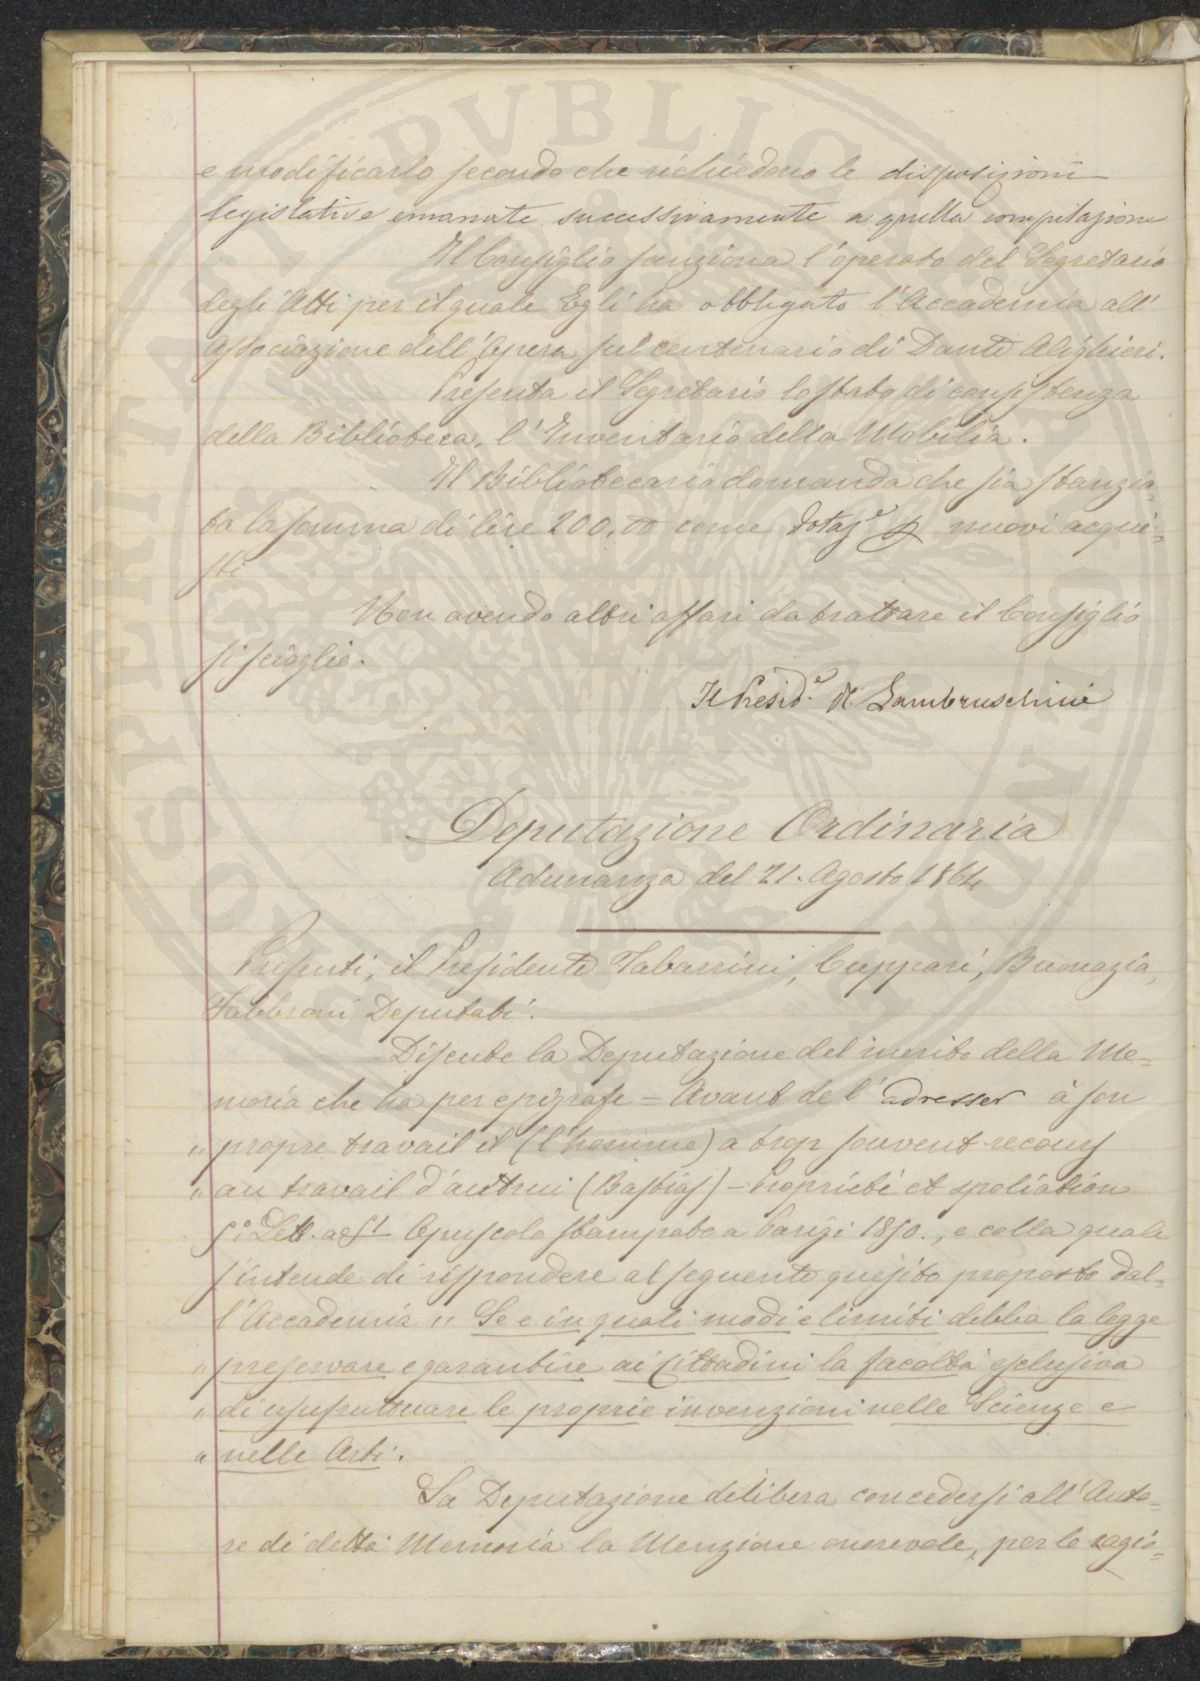 e modificarlo secondo che richiedono le disposizioni
legislative emanate successivamente a quella compilazione
Il Consiglio sanziona l'operato del Segretario
degli Atti per il quale Egli ha obbligato l'Accademia all'
Associazione dell'Opera sul centenario di Dante Alighieri.
Presenta il Segretario lo stato di consistenza
della Biblioteca, l'Inventario della Mobilia.
Il Bibliotecario domanda che sia stanzia-
ta la somma di lire 200.00 come dotaz.e nuovi acqui-
sti
Non avendo altri affari da trattare il Consiglio
si scioglie.
Il Presid.e R. Lambruschini
Deputazione Ordinaria
Adunanza del 21. Agosto 1864
Presenti, il Presidente Tabarrini, Cuppari, Buonazia,
Fabbroni Deputati.
Discute la Deputazione del merito della Me-
moria che ha per epigrafe = Avant de l'adresser à son
" propre travail il (l'homme) a trop souvent recours
" au travail d'autrui (Bastias) - Propriété et spoliation
Opuscolo stampato a Parigi 1850., e colla quale
s'intende di rispondere al seguente quesito proposto dal-
l'Accademia " Se e in quali modi e limiti debba la legge
" preservare e garantire ai Cittadini la facoltà esclusiva
" di usufruttuare le proprie invenzioni nelle Scienze e
" nelle Arti.
La Deputazione delibera concedersi all'Auto-
re di detta Memoria la Menzione onorevole, per le ragio-
PVBLIC